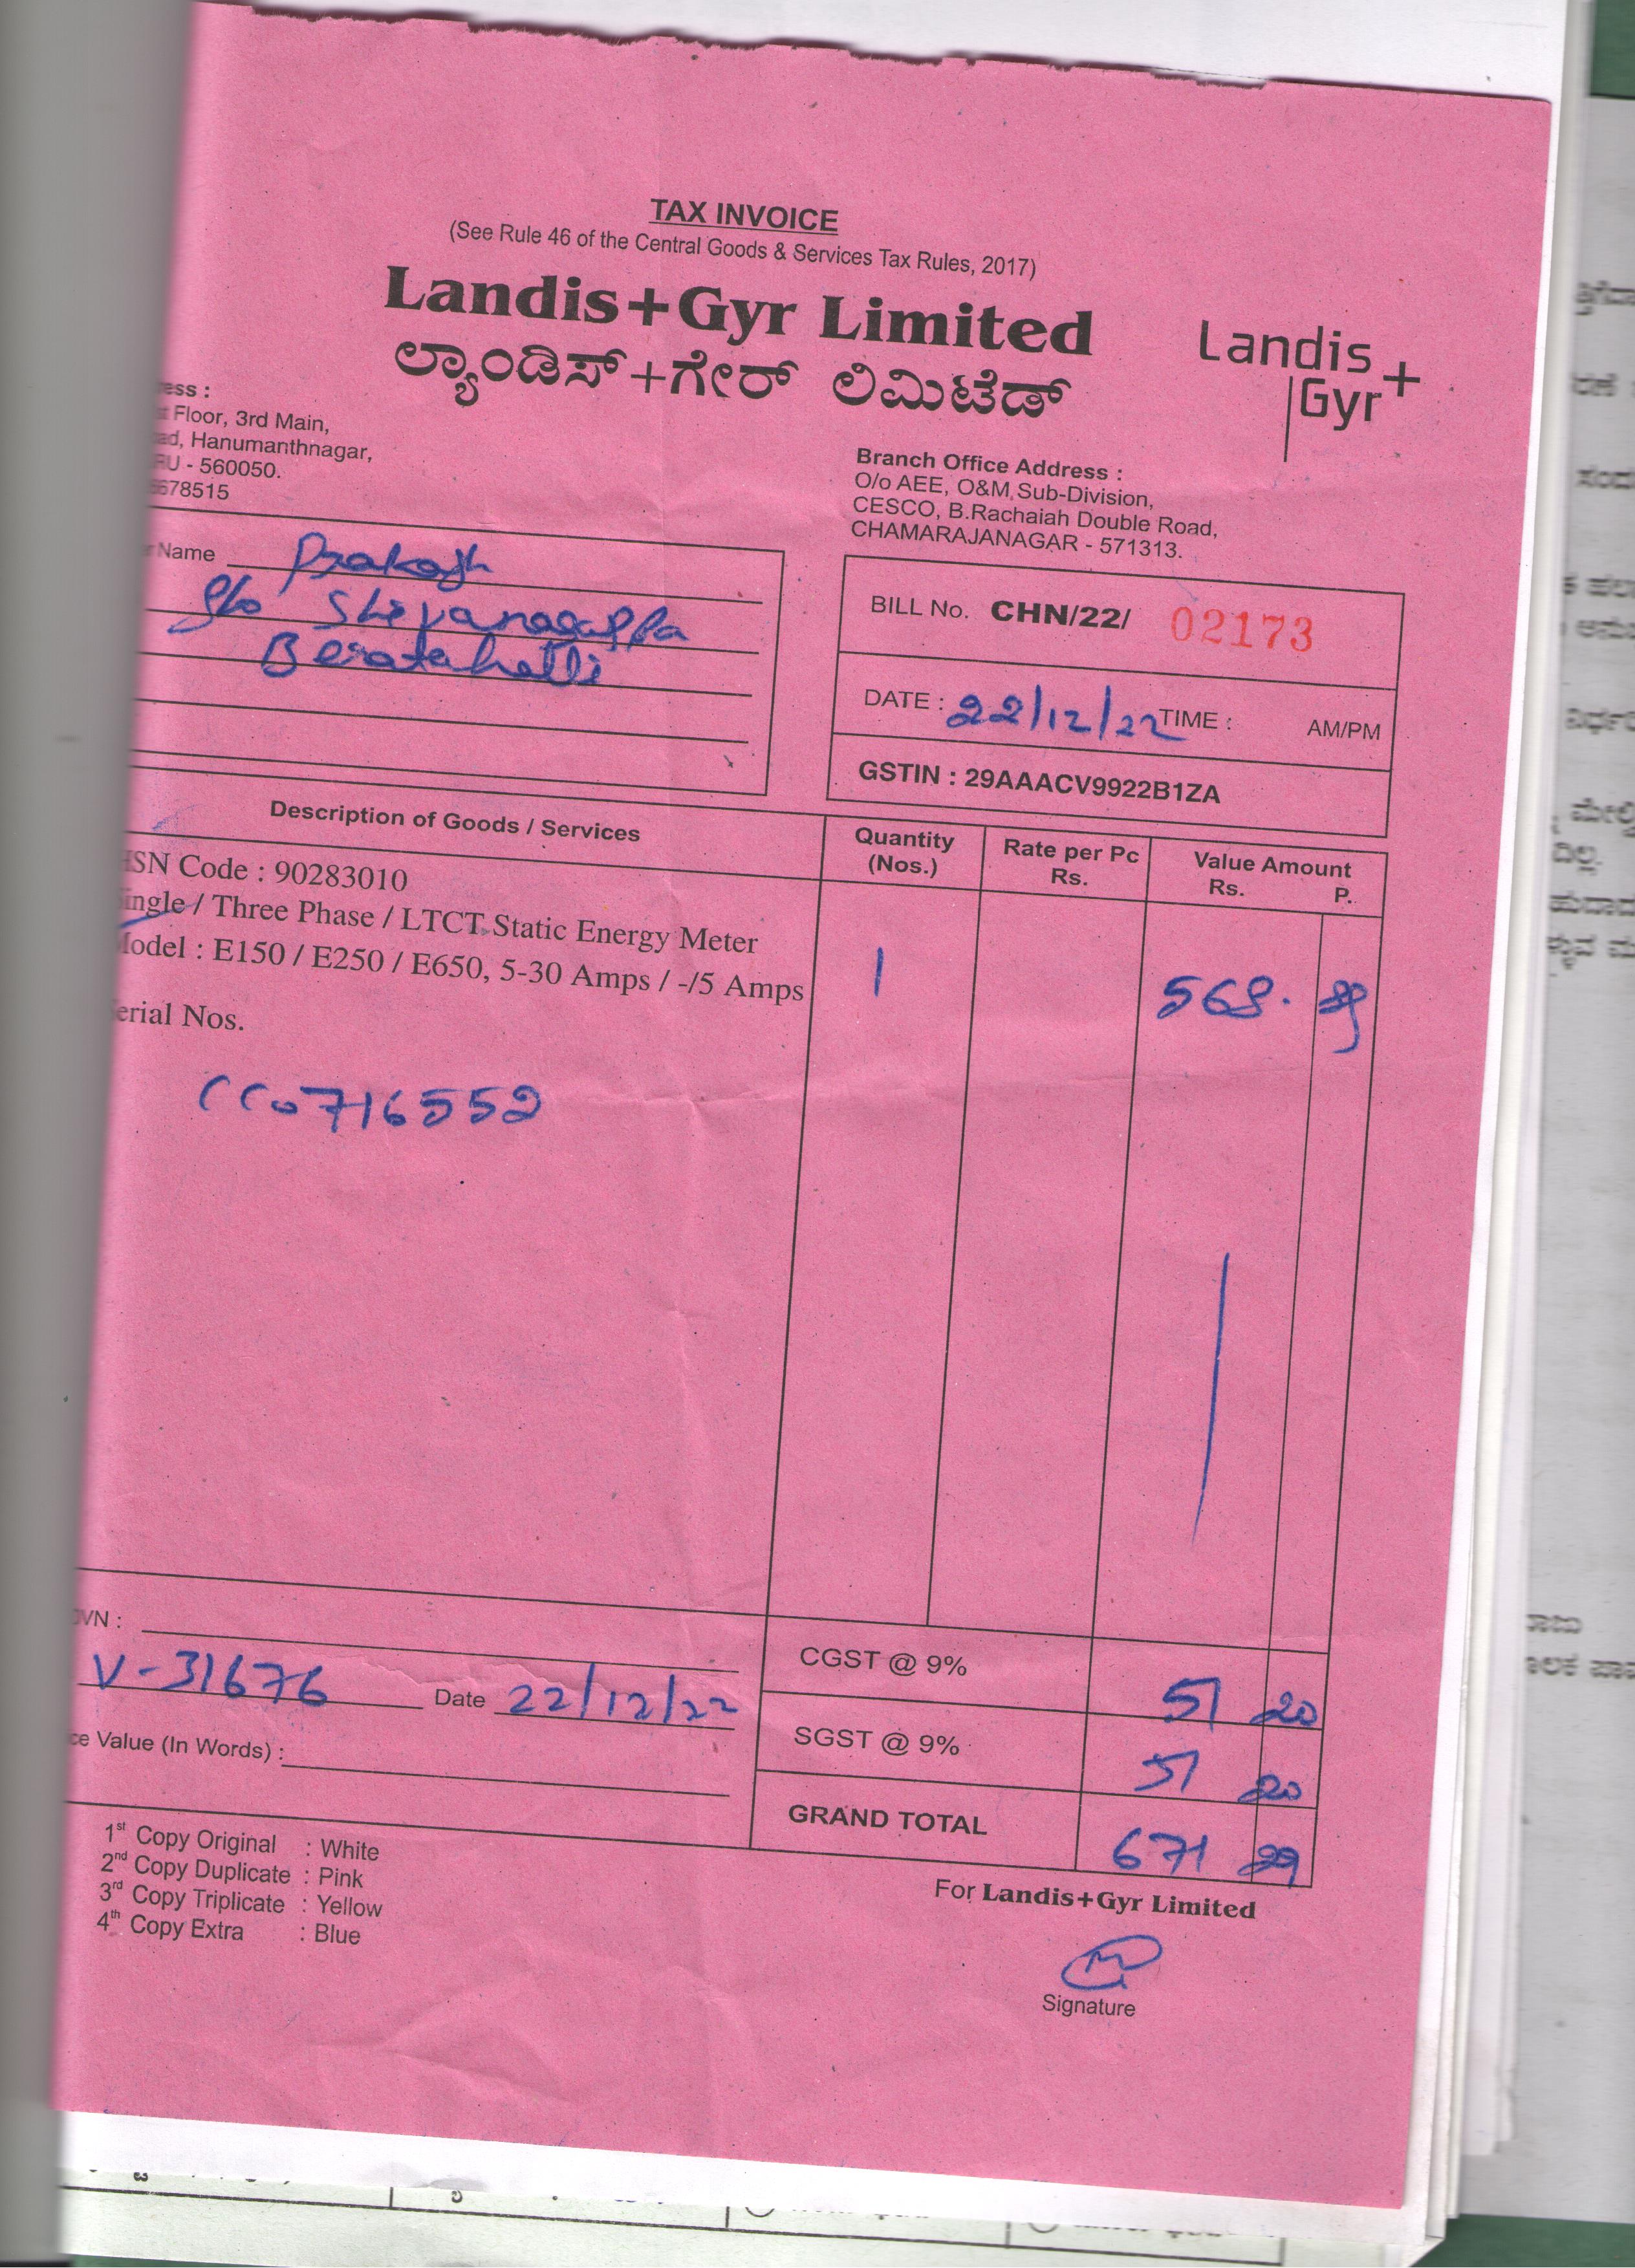 TAX INVOICE
(See Rule 46 of the Central Goods & Services Tax Rules, 2017)
Landis+Gyr Limited
ಲ್ಯಾಂಡಿಸ್+ಗೇರ್ ಲಿಮಿಟೆಡ್
Landis+
Gyr
ess :
Floor, 3rd Main,
ad, Hanumanthnagar,
RU - 560050.
678515
Branch Office Address :
O/o AEE, O&M Sub-Division,
CESCO, B.Rachaiah Double Road,
CHAMARAJANAGAR - 571313.
Name Prakash
S/o Shivanagappa
BILL No. CHN/22/ 02173
DATE : 22/12/22 TIME : AM/PM
GSTIN : 29AAACV9922B1ZA
Description of Goods / Services
Quantity (Nos.)
Rate per Pc Rs.
Value Amount Rs. P.
HSN Code : 90283010
Single / Three Phase / LTCT Static Energy Meter
Model : E150 / E250 / E650, 5-30 Amps / -/5 Amps
1
568. 89
Serial Nos.
CC0716552
OVN :
V-31676 Date 22/12/22
ce Value (In Words) :
CGST @ 9% 51 20
SGST @ 9% 51 20
GRAND TOTAL 671 29
1st Copy Original : White
2nd Copy Duplicate : Pink
3rd Copy Triplicate : Yellow
4th Copy Extra : Blue
For Landis+Gyr Limited
Signature